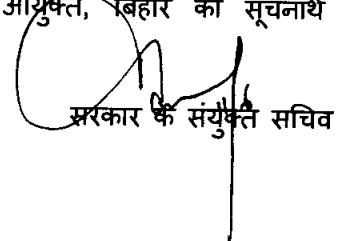 आयुक्त, बिहार को सूचनार्थ
सरकार के संयुक्त सचिव